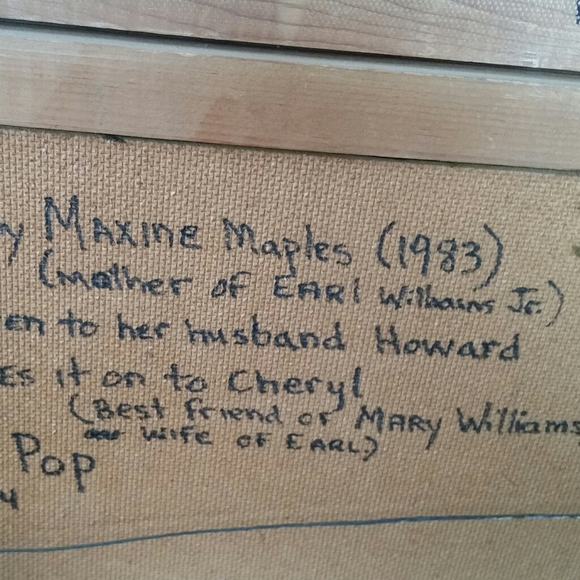 y MAXINE Maples (1983)
(mother of EARl Williams Jr.)
en to her husband Howard
Es it on to Cheryl
(Best friend of MARY Williams
wife OF EARL)
Pop
4